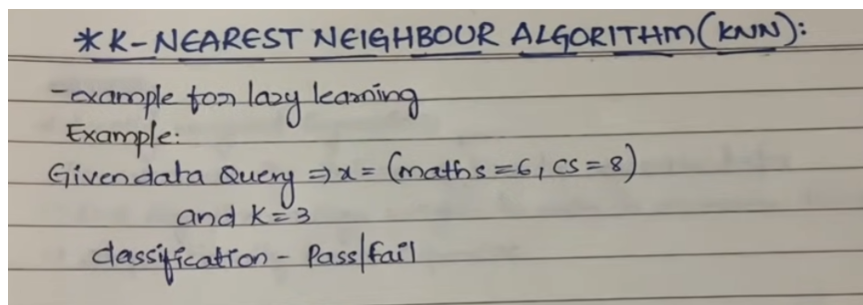 *K-NEAREST NEIGHBOUR ALGORITHM(KNN):
-example for lazy learning
Example:
Given data Query ⇒ x = (maths=6, CS=8)
and K=3
classification - Pass|fail